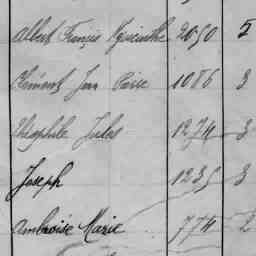 Albert François Hyacinthe 2050 5
Clément Jean Pierre 1086 3
Théophile Jules 1274 3
Joseph 1235 3
Ambroise Marie 774 2